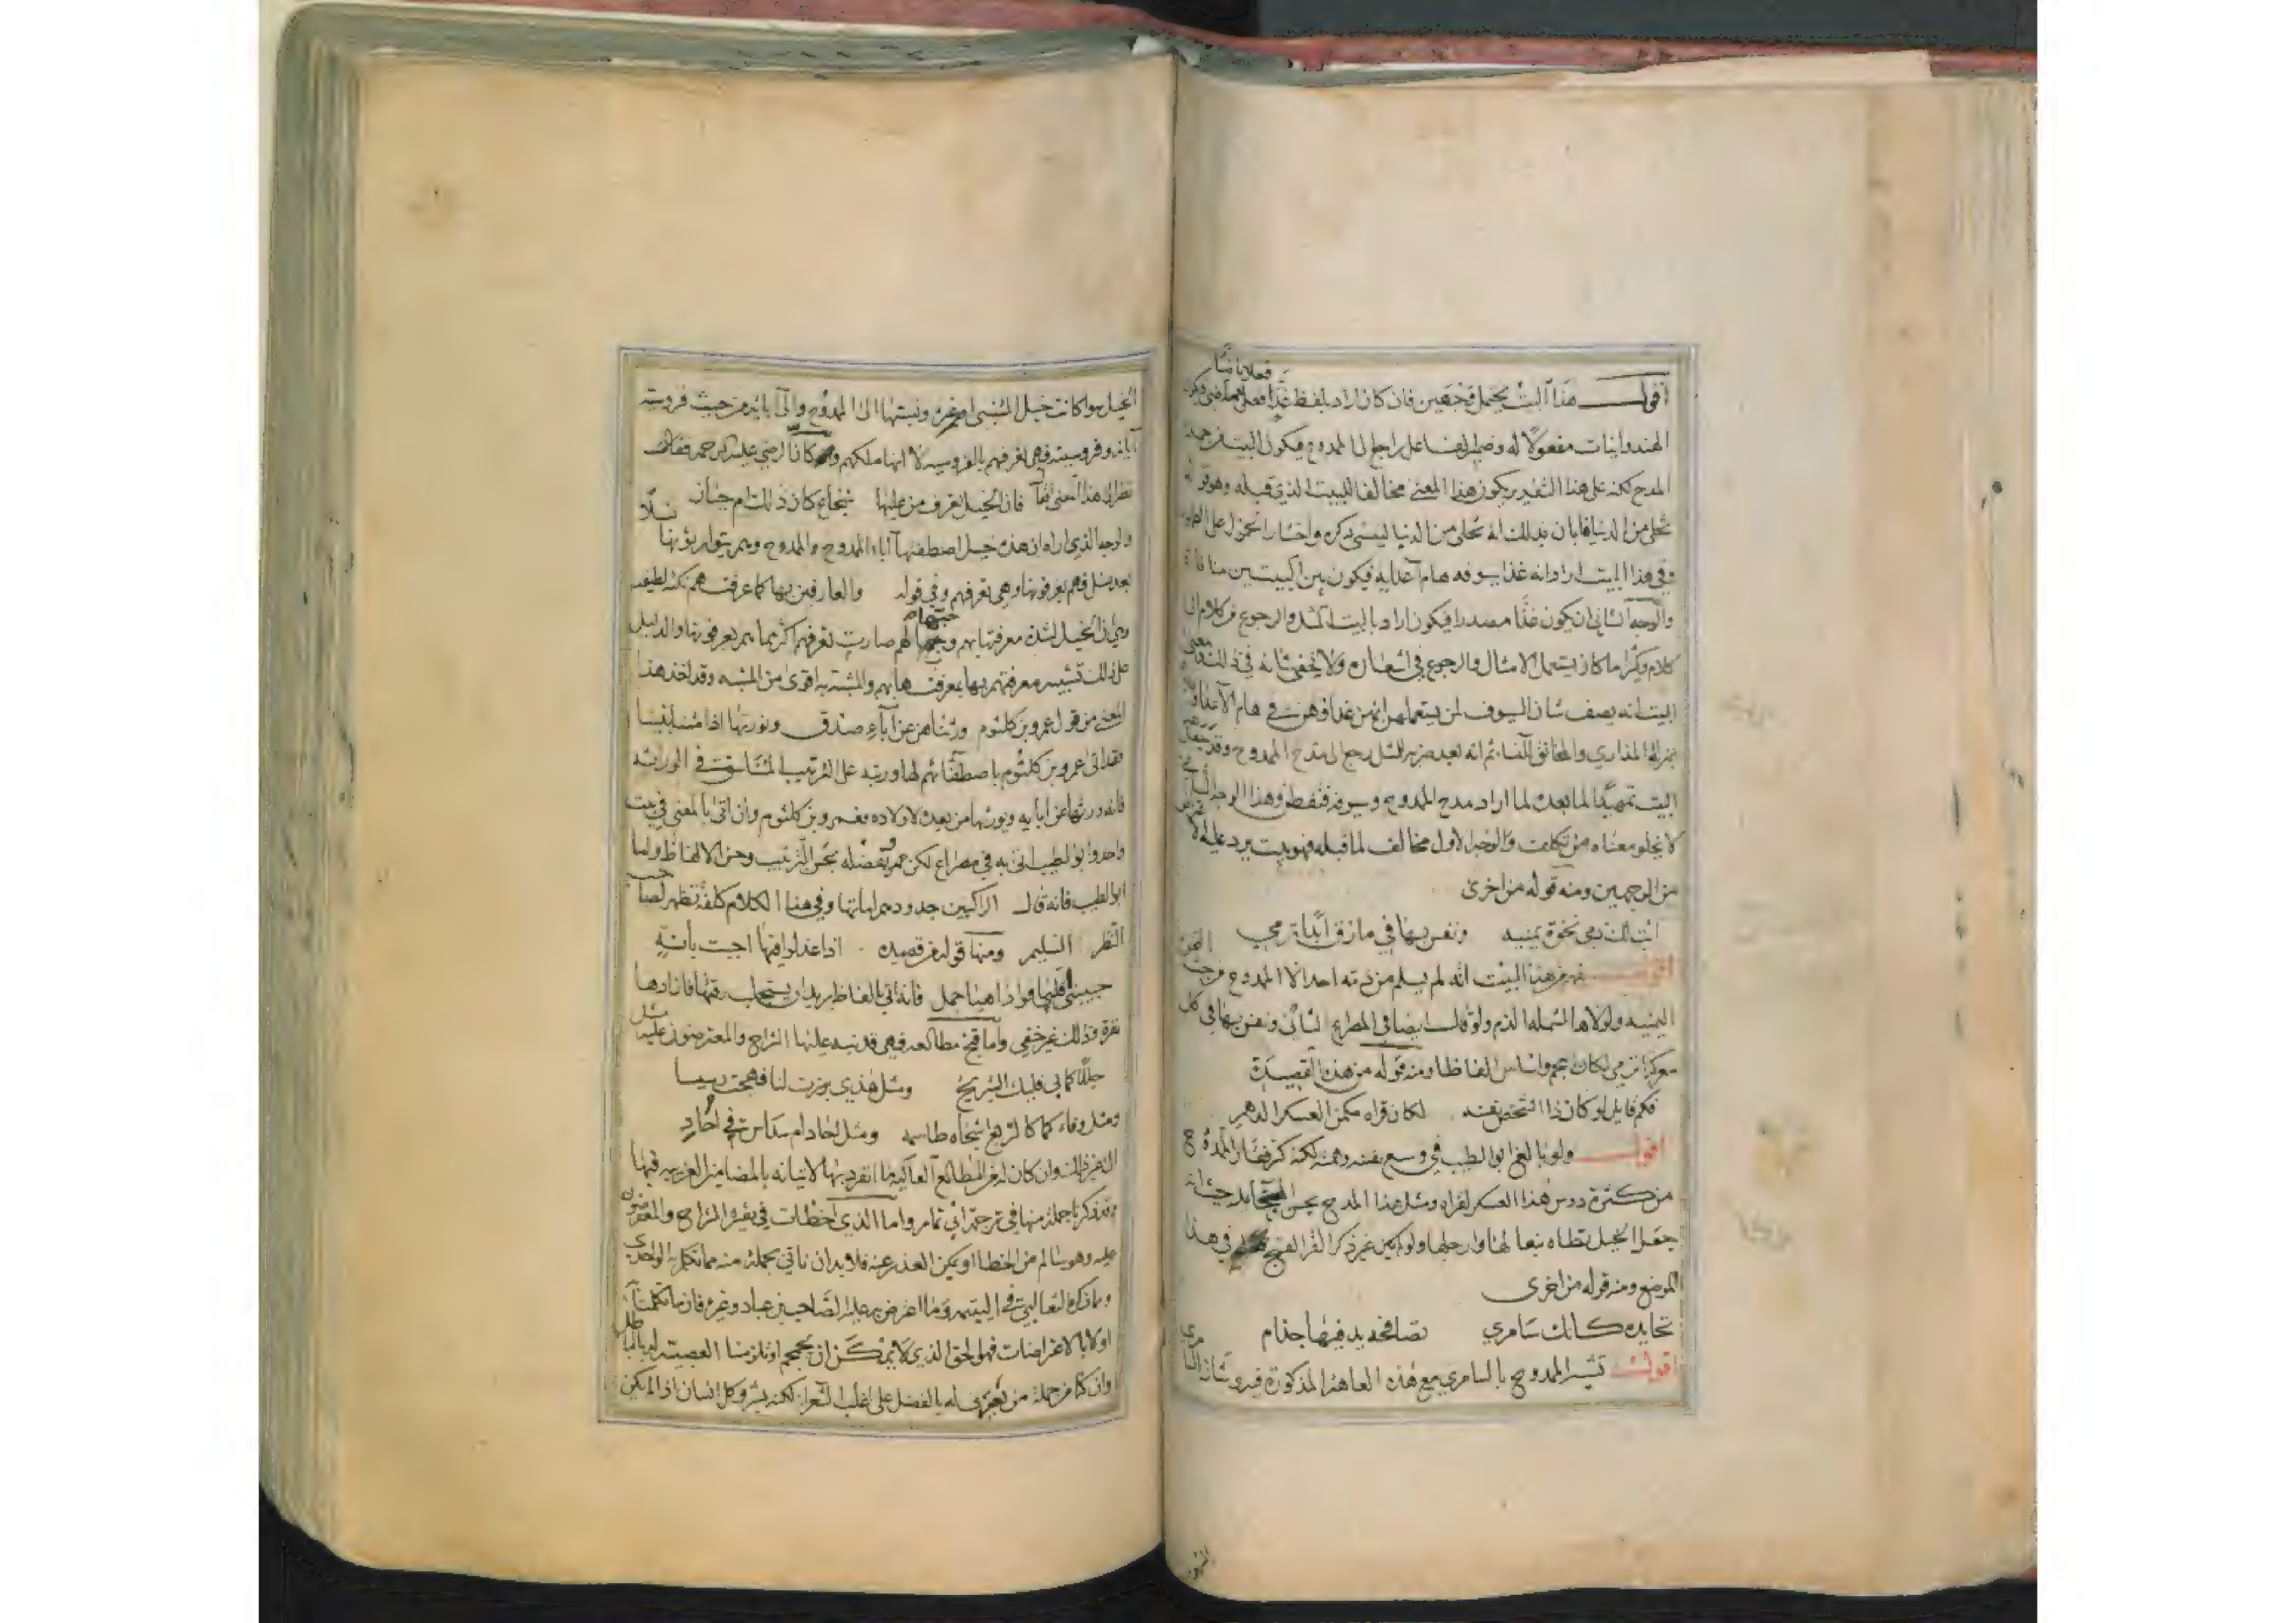 اقول هذا البيت يحتمل وجهين فان كان اراد بلفظ غذا فعلا ماضيا
الهندوانيات مفعولا له وضمير الفاعل راجع الى الممدوح فيكون البيت من جملة
المدح لكنه على هذا التقدير يكون هذا المعنى مخالفا للبيت الذي قبله وهو قوله
تخلى من الدنيا فابان بذلك انه تخلى من الدنيا لينسى ذكره واختار
وفي هذا البيت اراد انه غذا سيوفه هام اعدايه فيكون بين البيتين منافاة
والوجه الثاني ان يكون غذا مصدرا فيكون اراد بالبيت المثل والرجوع من كلام الى
كلام وكثيرا ما كان يستعمل الامثال والرجوع في اشعاره ولا يخفى شانه في ذلك
البيت انه يصف شان السيوف لمن يستعملها
بمنزلة المداري والمخانق ثم انه بعد ضربه المثل رجع الى مدح الممدوح وقد جعل
البيت تمهيدا لما بعده لما اراد مدح الممدوح وسيوفه فتفطن وهذا الوجه
لا يخلو معناه من تكلف والوجه الاول مخالف لما قبله فهو بيت يرد عليه
من الوجهين ومنه قوله من اخرى
ابت لك ذمي نخوة يمنية ونفس بها في مازق ابدا ترمي
اقول يفهم من هذا البيت انه لم يسلم من ذمه احد الا الممدوح من جهة
اليمنية ولولاها لشمله الذم ولو قال ايضا في المصراع الثاني ونفس بها في كل
معركة ترمي لكان ومنه قوله من هذه القصيدة
فكم قايل لو كان ذا الشخص نفسه لكان قراه مكمن العسكر الدهم
اقول ولو بالغ ابو الطيب في وسع نفسه وهمه لكنه كره قفا الممدوح
من كثرة دوس هذا العسكر لقراه ومثل هذا المدح
جعل الخيل تطاه تبعا لها وارجلها ولو لم يكن غير ذكر القرا القبيح في هذا
الموضع ومنه قوله من اخرى
تحايده كانك سامري تصافحه يد فيها جذام
اقول تشبيه الممدوح بالسامري مع هذه العاهة المذكورة فيه
الخيل سوا كانت خيل المتنبي او غيره ونسبتها الى الممدوح والى آبايه من حيث فروسية
آبايه وفروسيته فهي تعرفهم بالفروسية لا انها ملكهم وكان الرضي عليه الرحمة
نظر الى هذا المعنى فان الخيل تعرف من عليها شجاع كان ذلك ام جبان
والوجه الذي اراه ان هذه خيل اصطفتها آباء الممدوح والممدوح وهم يتوارثونها نسلا
بعد نسل فهم يعرفونها وهي تعرفهم وفي قوله والعارفين بها كما عرفتهم نكتة لطيفة
وهي ان الخيل لشدة معرفتها بهم وحبها لهم صارت تعرفهم اكثر مما هم يعرفونها والدليل
على ذلك تشبيه معرفتهم بها بمعرفتها بهم والمشبه به اقوى من المشبه وقد اخذ هذا
المعنى من قول عمرو بن كلثوم ورثناهن عن آباء صدق ونورثها اذا متنا بنينا
فقد اتى عمرو بن كلثوم باصطفائهم لها ورتبه على الترتيب المتناسق في الوراثة
فانه ورثها عن ابايه ويورثها من بعده لاولاده فعمرو بن كلثوم وان اتى بالمعنى في بيت
واحد وابو الطيب اتى به في مصراع لكن عمرو يفضله بحسن الترتيب وحسن الالفاظ واما
ابو الطيب فانه قال الراكبين جدودهم اماتها وفي هذا الكلام كلفة تظهر لصاحب
النظر السليم ومنها قوله من قصيدة اذا عذلوا فيها اجبت بأنة
حبيبتي قلبا فوادا هيا جمل فانه اتى بالفاظ يريد ان يستجلب رقتها فازادها
نفرة وذلك غير خفي واما قبح مطالعه فهي قد نبه عليها الشراح والمعترضون عليه مثل
جللا كما بي فليك التبريح ومثل هذي برزت لنا فهجت رسيسا
ومثل وفاءكما كالربع اشجاه طاسمه ومثل احاد ام سداس في احاد
الى غير ذلك وان كان له من المطالع العالية ما انفرد بها لاتيانه بالمضامين الغريبة فيها
وقد ذكرنا جملة منها في ترجمة ابي تمام واما الذي اخطات في تفسيره الشراح والمعترضون
عليه وهو سالم من الخطا او يمكن العذر عنه فلا بد ان ناتي بجملة منه مما تكلم به الواحدي
وما ذكره الثعالبي في اليتيمه وما اعترض به عليه الصاحب بن عباد وغيره فان ما تكلمنا
اولا بالاعتراضات فهو الحق الذي لا يمكن ان
وان كنا من جملة من يعترف له بالفضل على اغلب الشعرا لكنه بشر وكل انسان اذا لم يكن